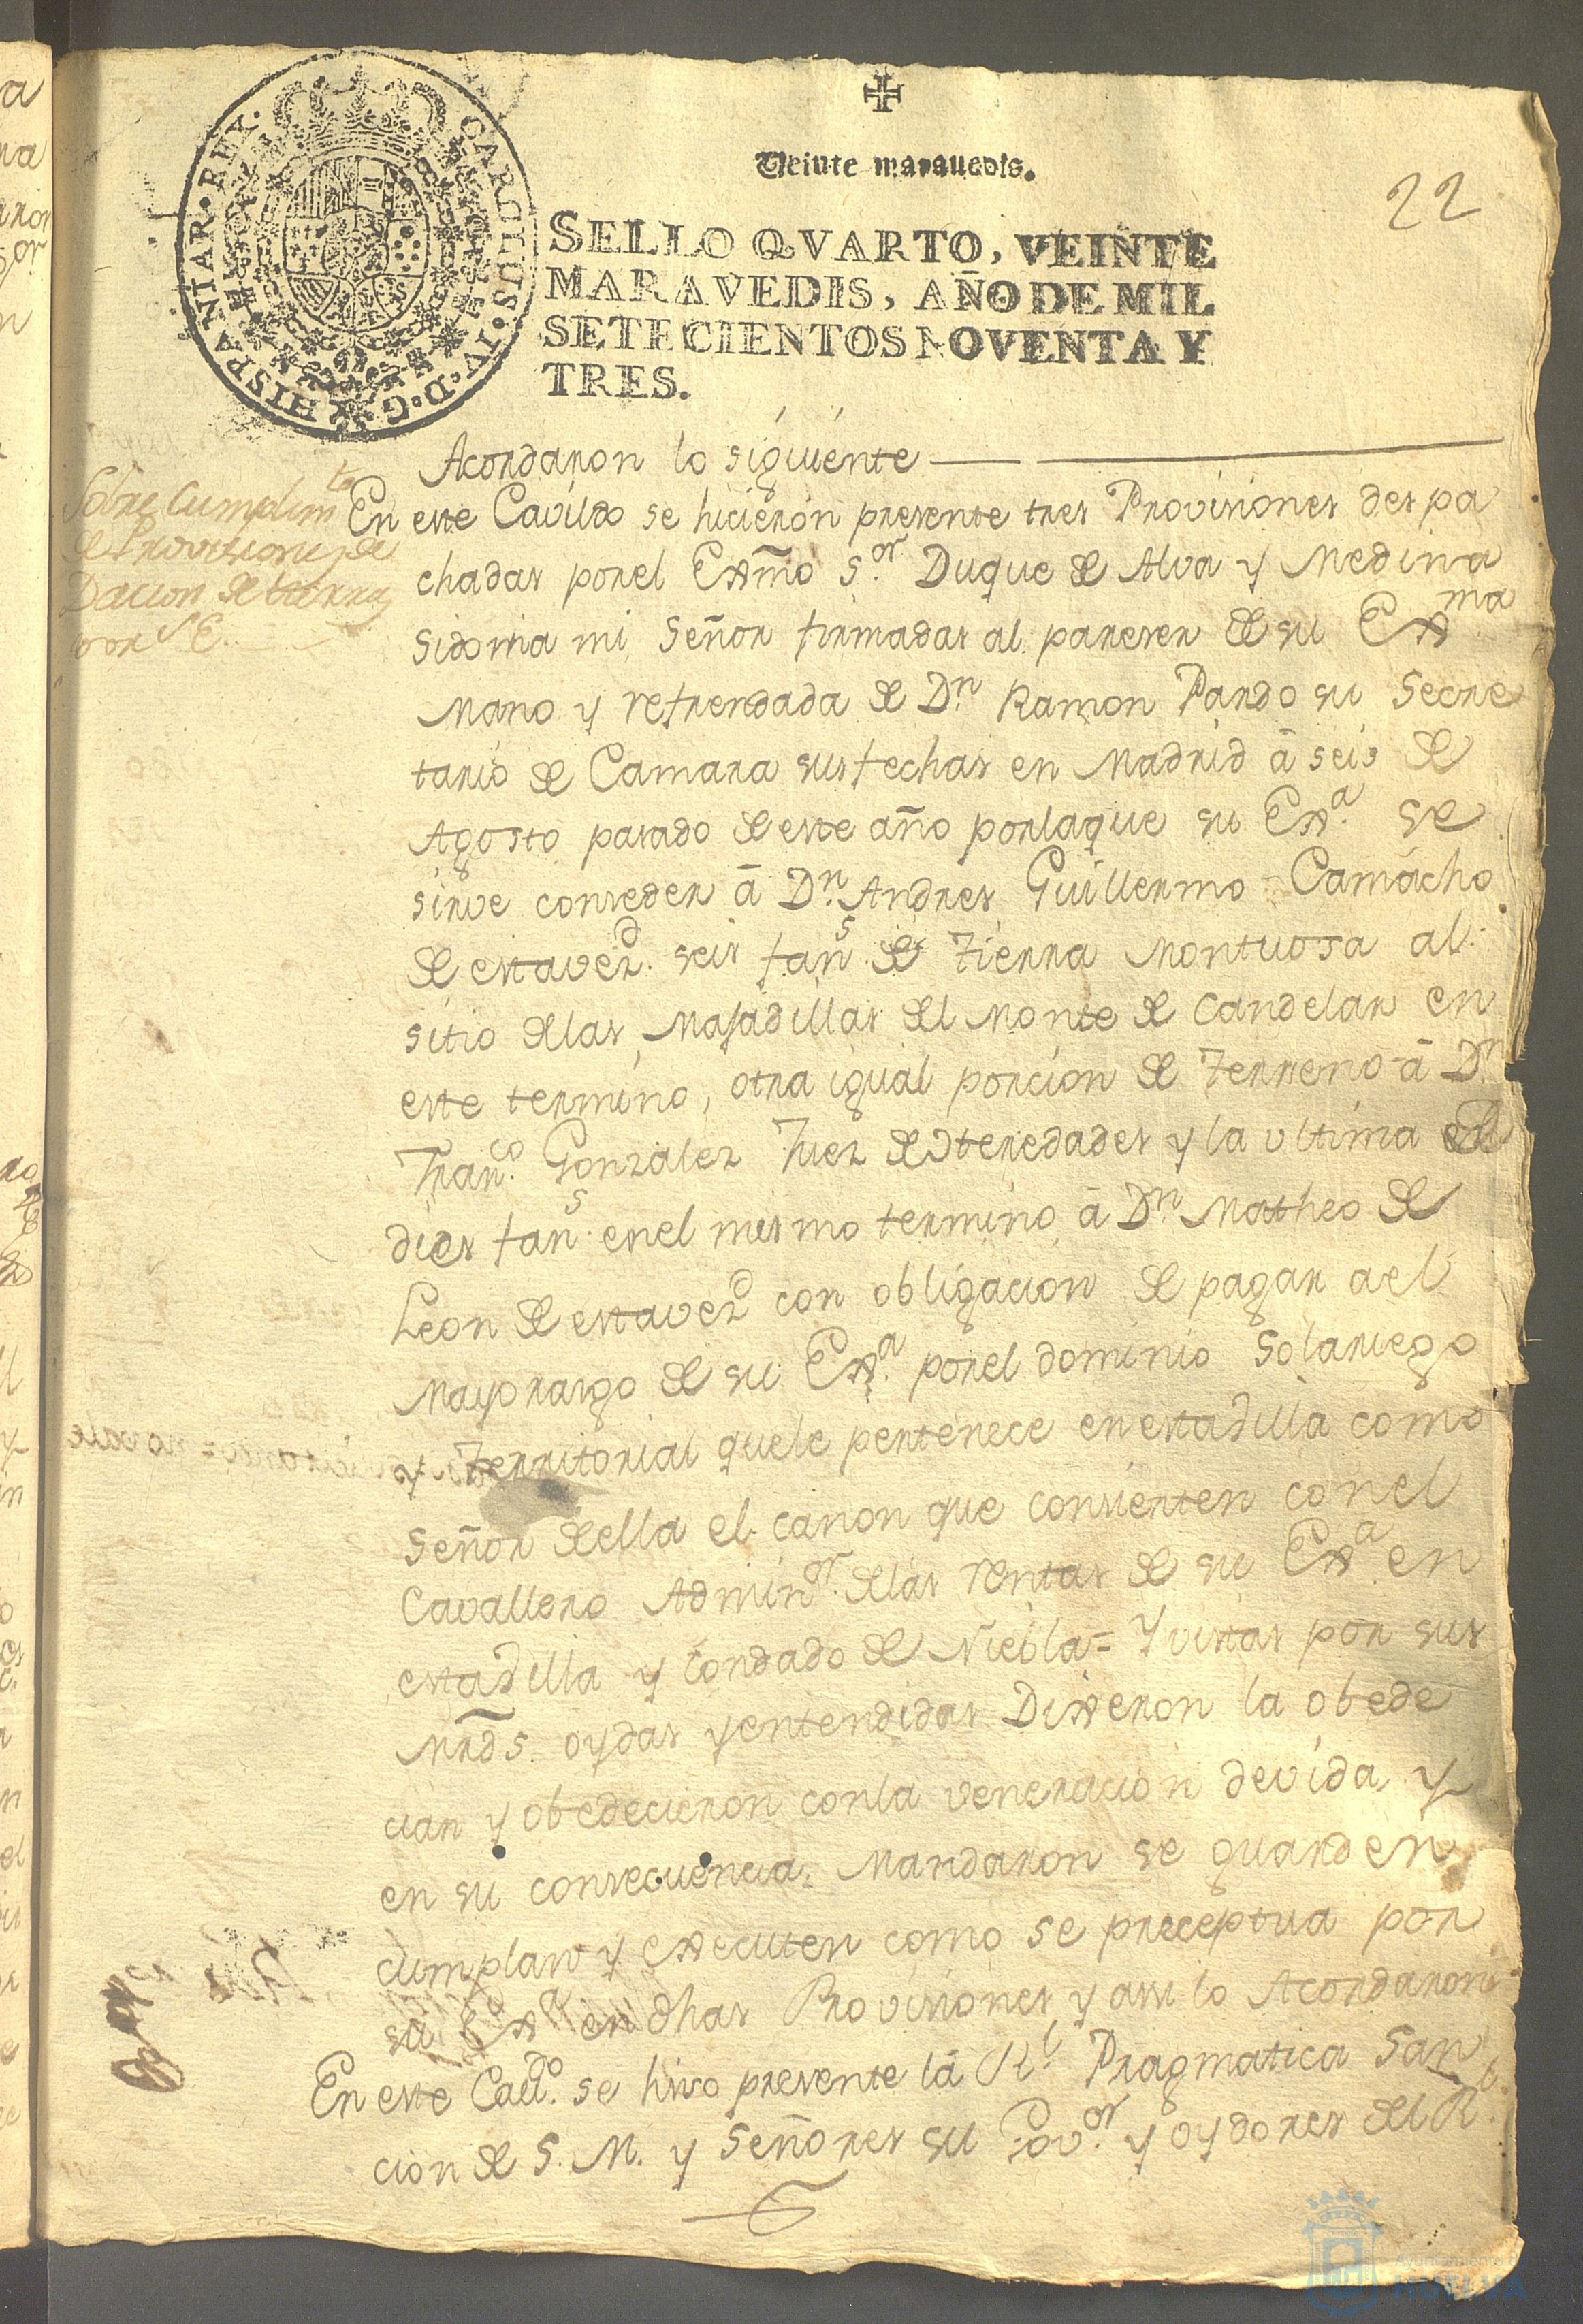 ✠
Veinte maravedis.
22
CAROLUS·IV·D·G·HISPANIAR·REX·
SELLO QVARTO, VEINTE
MARAVEDIS, AÑO DE MIL
SETECIENTOS NOVENTA Y
TRES.
Acordaron lo siguiente
Sobre Cumplim.to
de Provisiones de
Dacion de tierras
por S.E.
En este Cavildo se hicieron presente tres Provisiones despa
chadas por el Exmo S.or Duque de Alva y Medina
sidonia mi Señor firmadas al pareser de su Exma
Mano y refrendada de Dn. Ramon Pardo su Secre
tario de Camara sus fechas en Madrid â seis de
Agosto pasado de este año por la que su Exa. se
sirve conseder â Dn. Andres Guillermo Camacho
de esta vezd. seis fans. de Tierra Montuosa al
sitio de las Majadillas del Monte de Candelar en
este termino, otra igual porcion de Terreno â Dn.
Franco. Gonzalez Juez de Heredades y la ultima de
dies fans. en el mismo termino â Dn. Matheo de
Leon de esta vezd. con obligacion de pagar a el
Mayorasgo de su Exa. por el dominio Solariego
y Territorial que le pertenece en esta Villa como
Señor de ella el canon que consierten con el
Cavallero Admin.or de las rentas de su Exa. en
esta Villa y Condado de Niebla= Y vistas por sus
Mrds. oydas y entendidas Dixeron la obede
cian y obedecieron con la veneracion devida, y
en su consecuencia. Mandaron se guarden
cumplan y executen como se preceptua por
su Exa. en dhas Provisiones y assi lo Acordaron
En este Cavdo. se hiso presente la Rl. Pragmatica San
cion de S. M. y Señores su Gov.or y oydores del Rl.
Ayuntamiento de
HUELVA